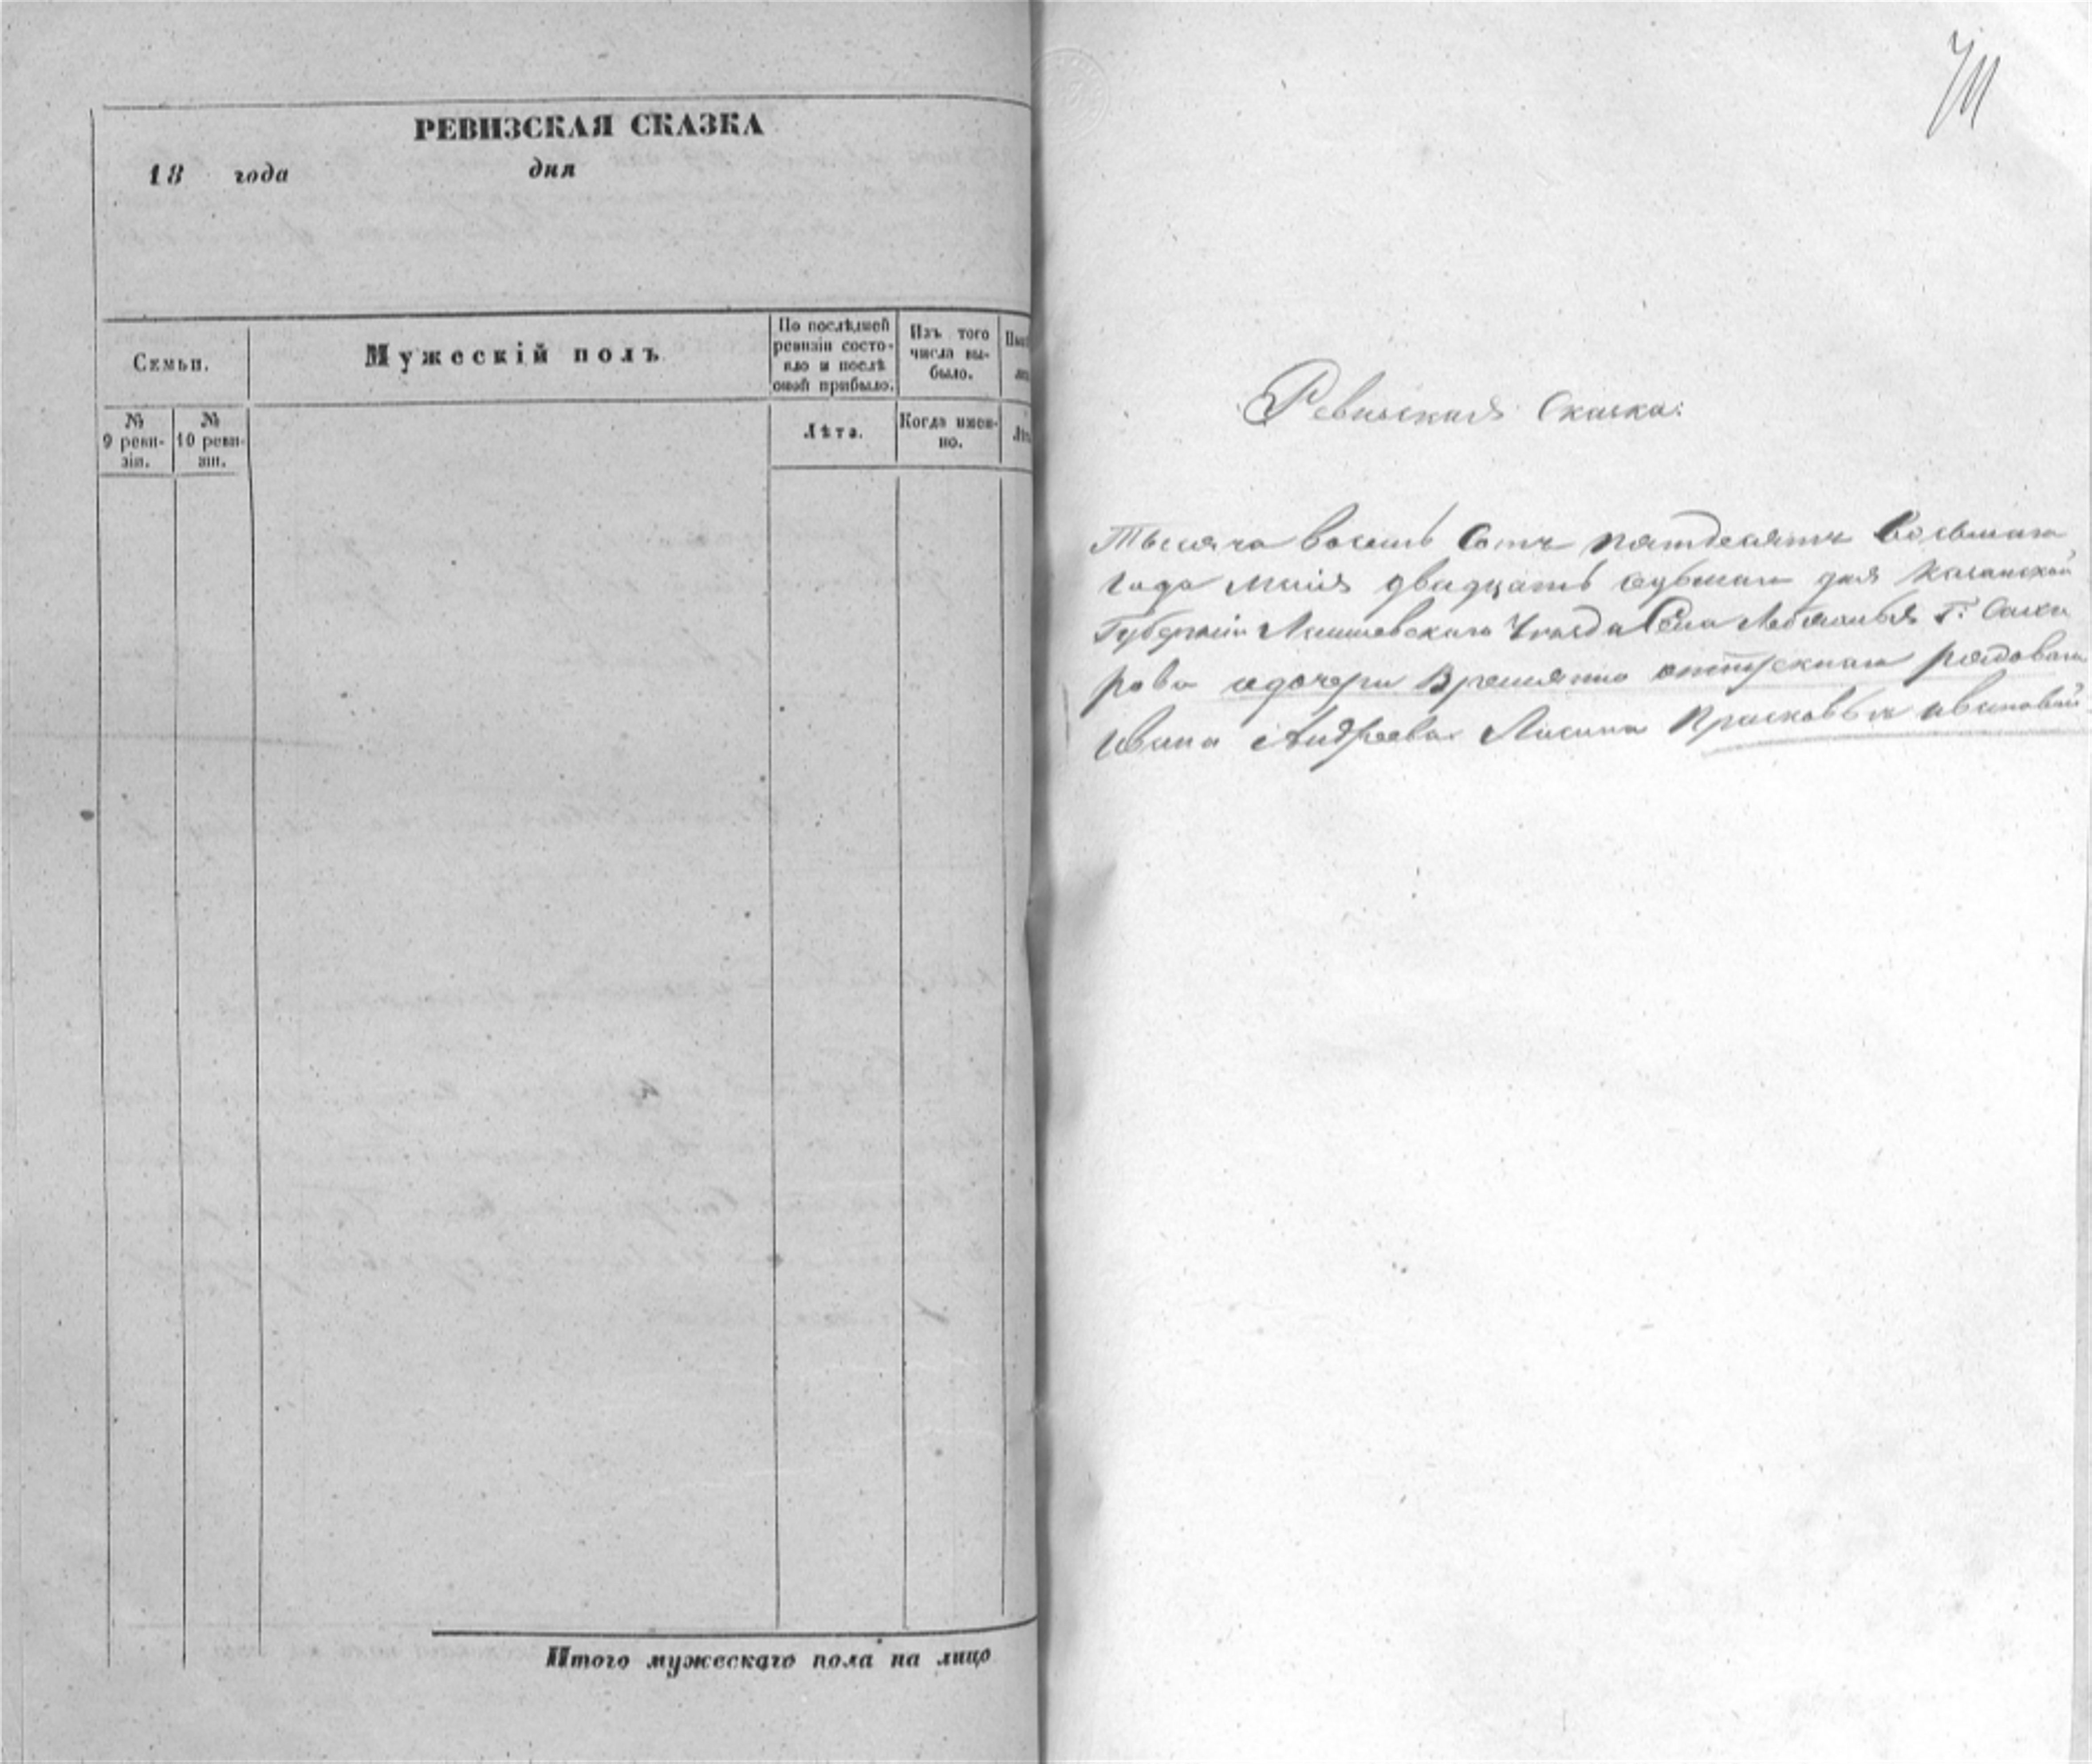 РЕВИЗСКАЯ СКАЗКА
18 года дня
Семьи.
Мужескій полъ
По послѣдней
ревизіи состо-
яло и послѣ
оной прибыло.
Изъ того
числа вы-
было.
№
9 реви-
зіи.
№
10 реви-
зіи.
Лѣта.
Когда имен-
но.
Итого мужескаго пола на лицо
Ревизская Сказка:
Тысяча восемь Сотъ пятдесятъ Восьмаго
Года Маія двадцать седьмаго дня Казанской
Губерніи Лаишевскаго Уѣзда Села Г:
рова о дочери Временно отпускнаго рядоваго
Ивана Андреева Прасковьи Ивановой